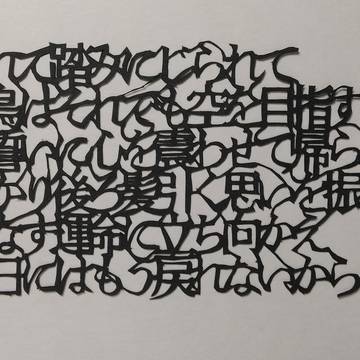 れて踏みにじられて
鳥はそれでも空を目指す
を震わせて帰
り後ろ髪引く思いを振
ず運命に立ち向かえ
日にはもう戻れないから